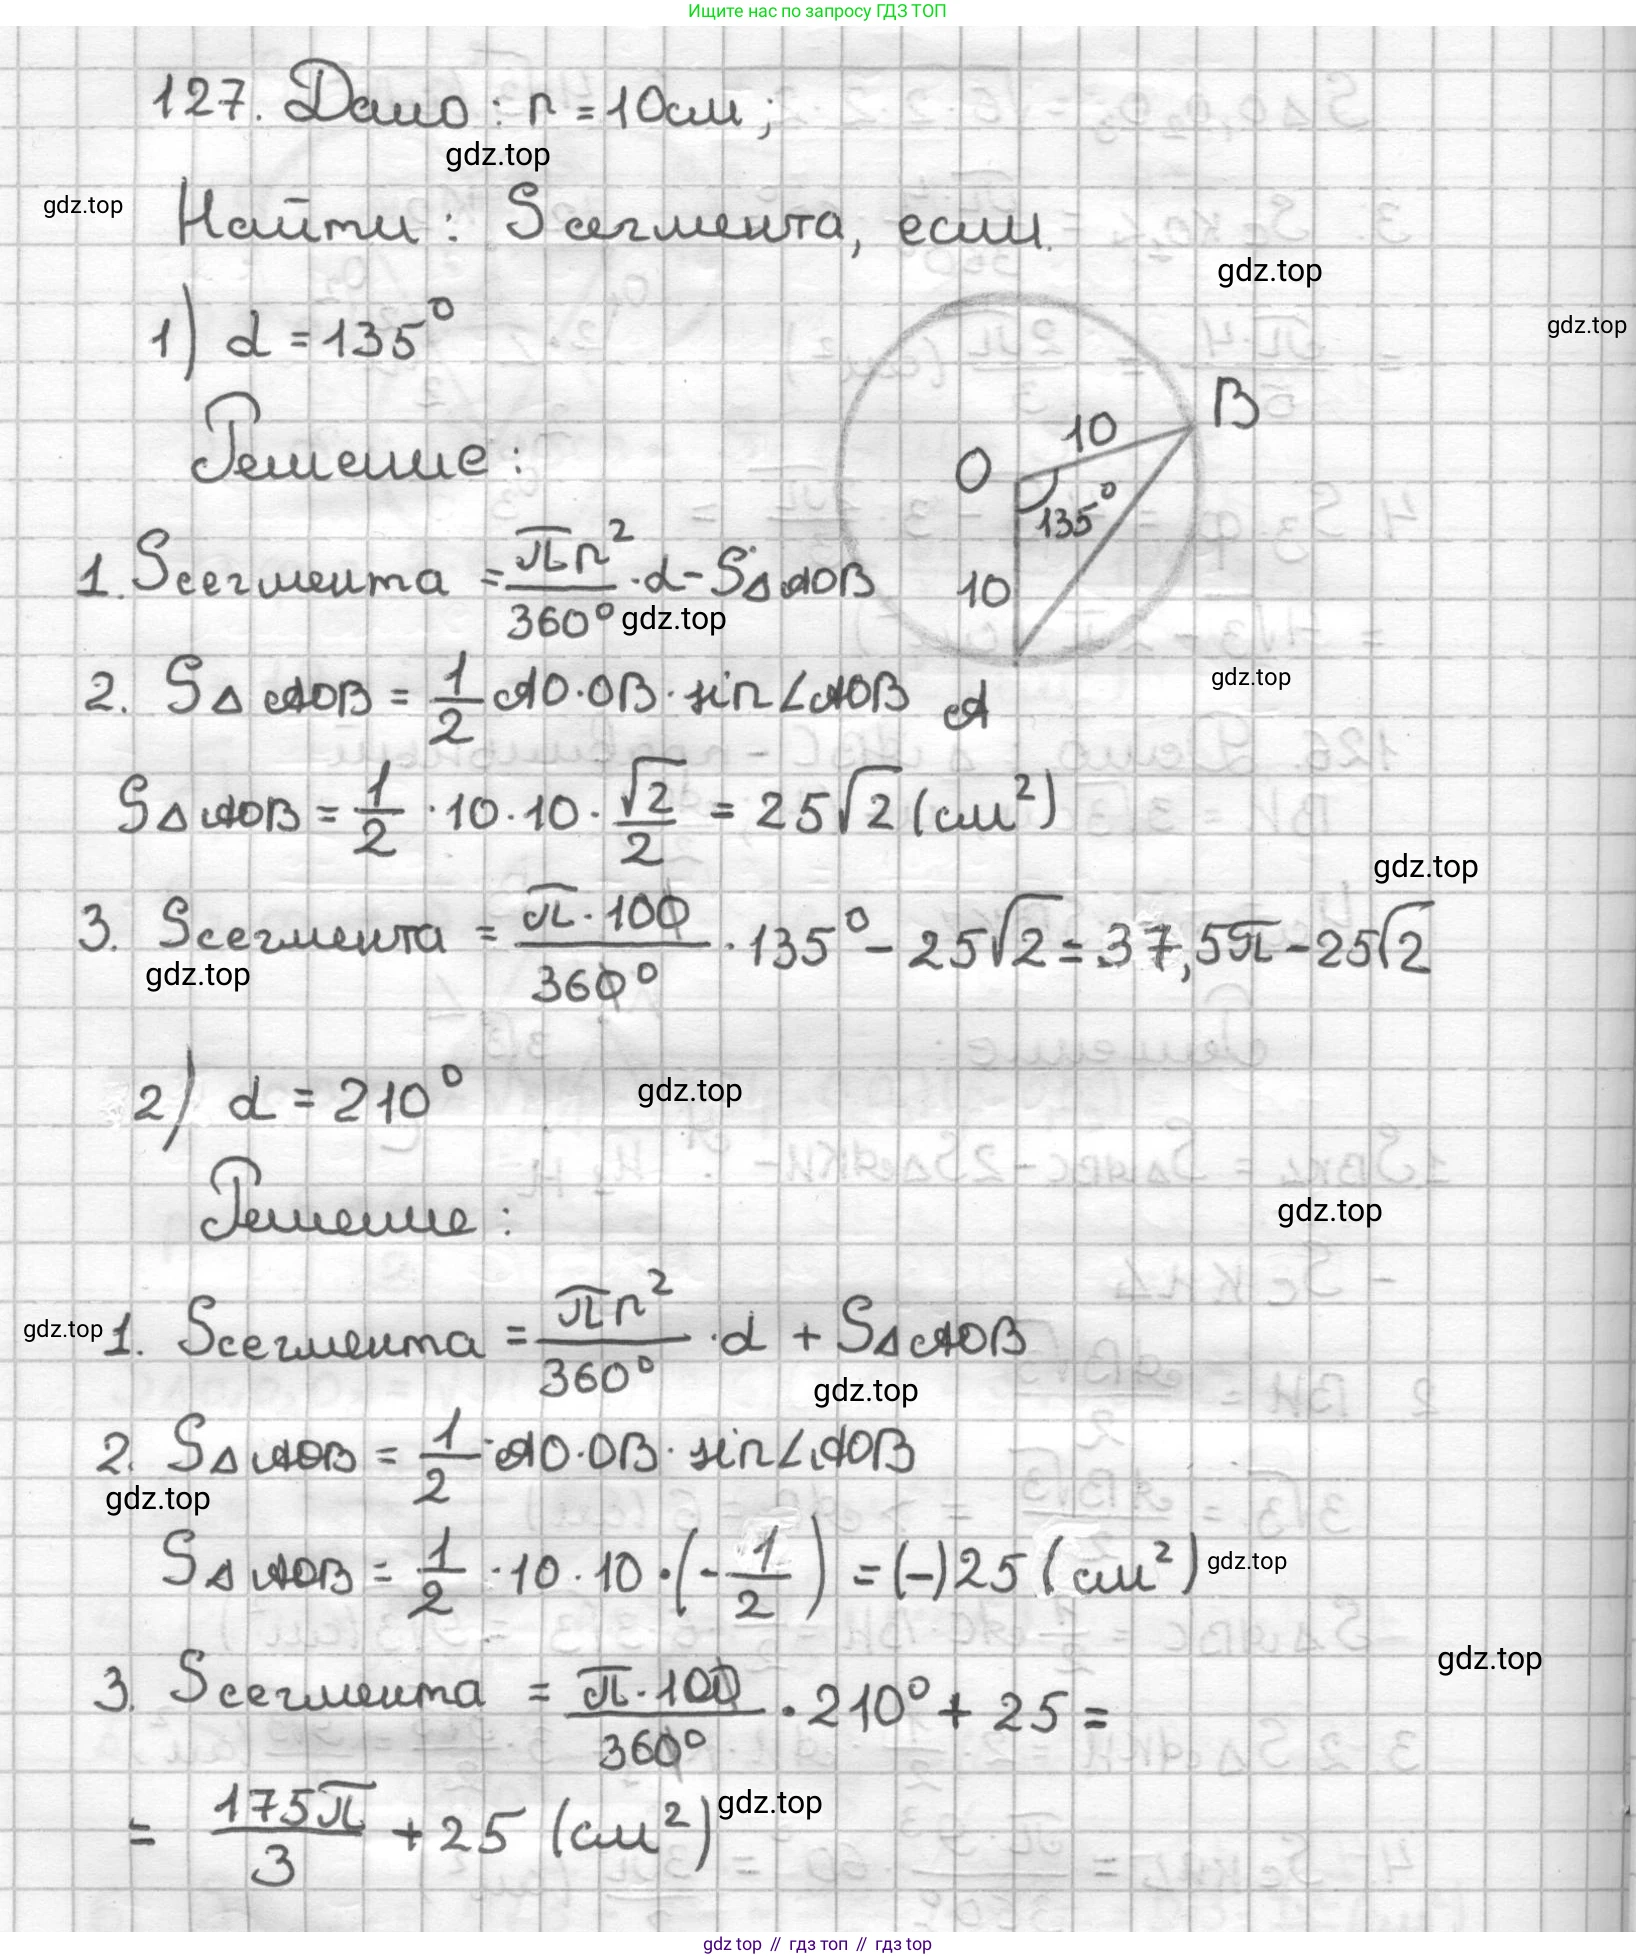 Ищите нас по запросу ГДЗ ТОП
127. Дано: r = 10см;
gdz.top
gdz.top
Найти: Sсегмента, если.
gdz.top
gdz.top
1) α = 135°
Решение:
B
10
O
135°
10
A
1. Sсегмента = πr²/360° · α - S△AOB
gdz.top
2. S△AOB = 1/2 AO·OB·sin∠AOB
gdz.top
S△AOB = 1/2 · 10 · 10 · √2/2 = 25√2 (см²)
gdz.top
3. Sсегмента = π·100/360° · 135° - 25√2 = 37,5π - 25√2
gdz.top
2) α = 210°
gdz.top
Решение:
gdz.top
gdz.top
1. Sсегмента = πr²/360° · α + S△AOB
gdz.top
2. S△AOB = 1/2 · AO·OB·sin∠AOB
gdz.top
S△AOB = 1/2 · 10 · 10 · (-1/2) = (-)25 (см²)
gdz.top
gdz.top
3. Sсегмента = π·100/360° · 210° + 25 =
= 175π/3 + 25 (см²)
gdz.top
gdz top // гдз топ // гдз top